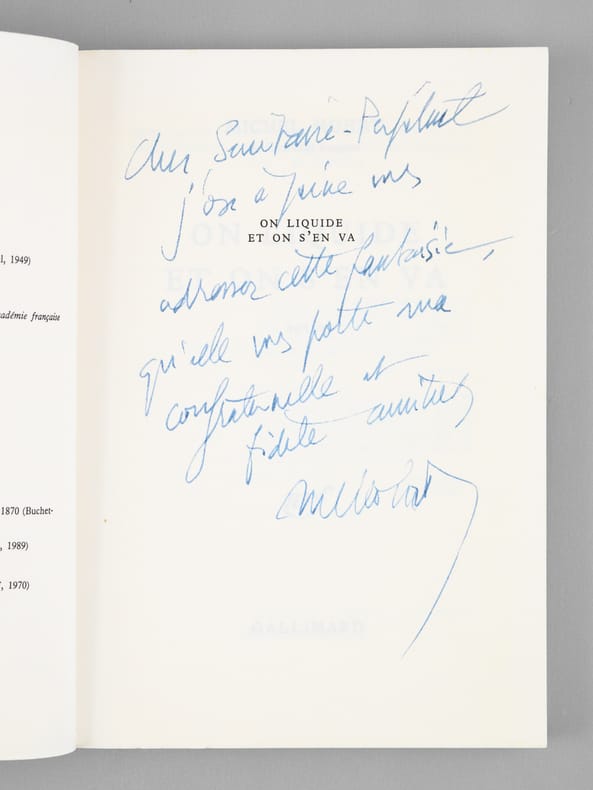 Cher
j'ose à peine vous
ON LIQUIDE
ET ON S'EN VA
adresser cette fantaisie,
qu'elle vous porte ma
confraternelle et
fidèle amitié
GALLIMARD
l, 1949)
cadémie française
1870 (Buchet-
, 1989)
, 1970)